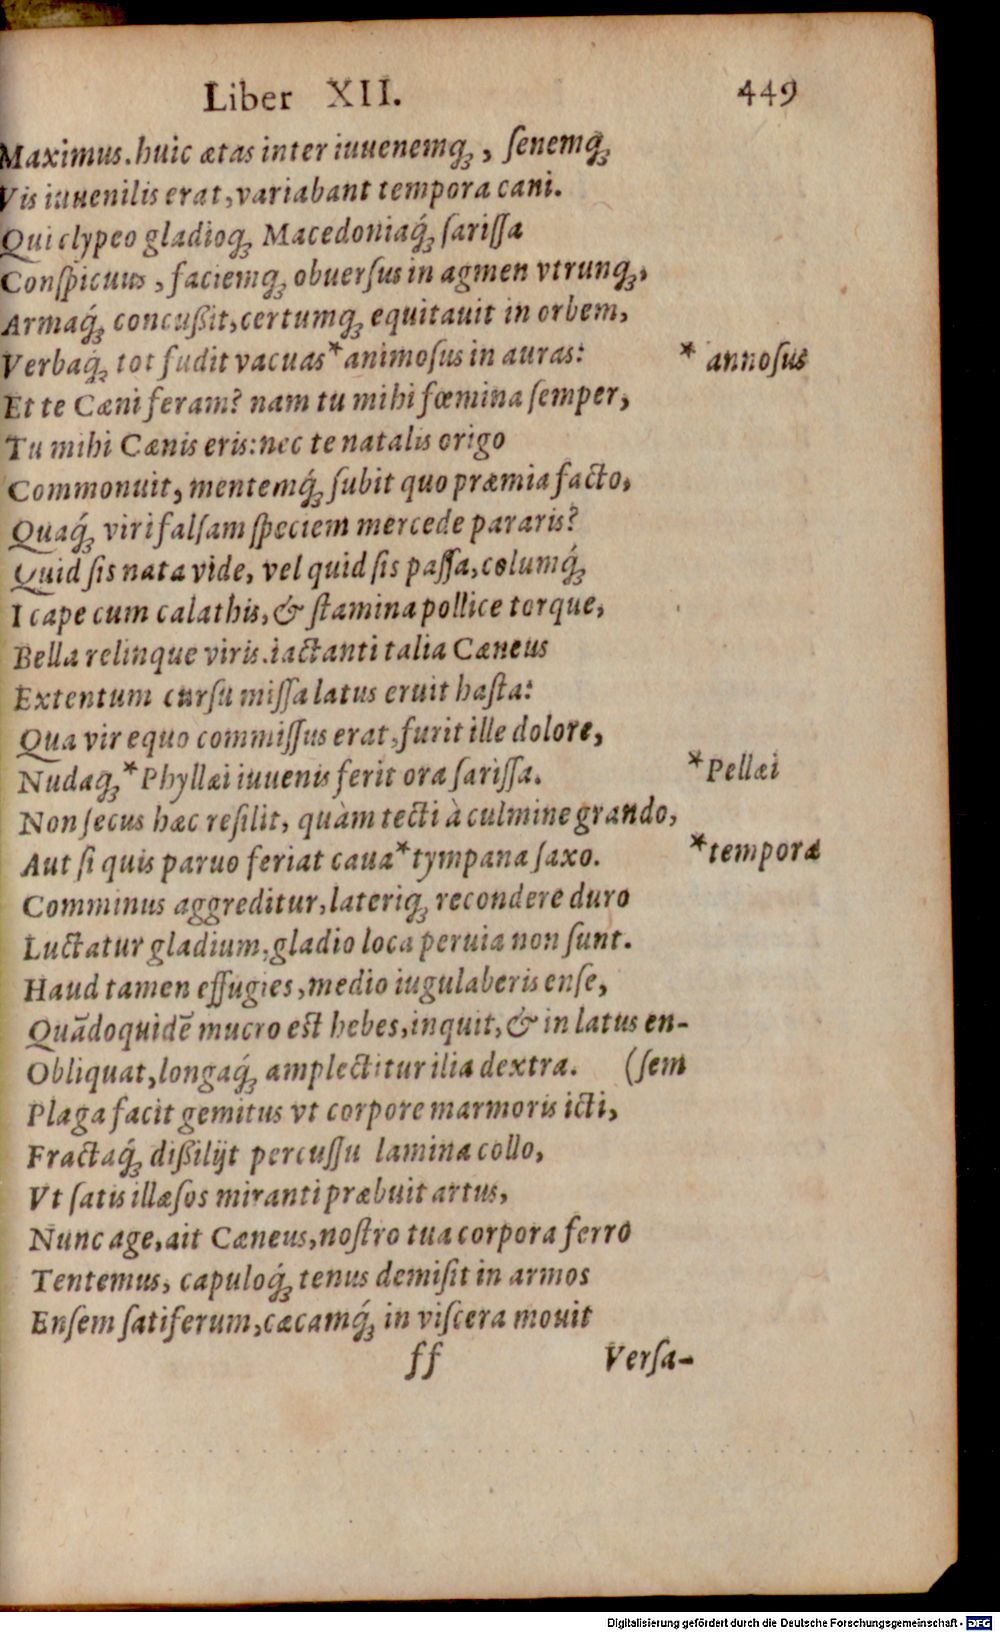 Liber XII. 449
Maximus. huic ætas inter iuuenemqꝫ, ſenemqꝫ
Vis iuuenilis erat, variabant tempora cani.
Qui clypeo gladioqꝫ Macedoniaq́ꝫ ſariſſa
Conſpicuus, faciemqꝫ obuerſus in agmen vtrunqꝫ,
Armaq́ꝫ concußit, certumqꝫ equitauit in orbem,
Verbaq́ꝫ tot fudit vacuas * animoſus in auras: * annoſus
Et te Cæni feram? nam tu mihi fœmina ſemper,
Tu mihi Cænis eris: nec te natalis origo
Commonuit, mentemq́ꝫ ſubit quo præmia facto,
Quaq́ꝫ viri falſam ſpeciem mercede pararis?
Quid ſis nata vide, vel quid ſis paſſa, columq́ꝫ
I cape cum calathis, & ſtamina pollice torque,
Bella relinque viris. iactanti talia Cæneus
Extentum curſu miſſa latus eruit haſta:
Qua vir equo commiſſus erat, furit ille dolore,
Nudaqꝫ * Phyllæi iuuenis ferit ora ſariſſa. * Pellæi
Non ſecus hæc reſilit, quàm tecti à culmine grando,
Aut ſi quis paruo feriat caua * tympana ſaxo. * temporæ
Comminus aggreditur, lateriqꝫ recondere duro
Luctatur gladium, gladio loca peruia non ſunt.
Haud tamen effugies, medio iugulaberis enſe,
Quãdoquidẽ mucro eſt hebes, inquit, & in latus en-
Obliquat, longaq́ꝫ amplectitur ilia dextra. (ſem
Plaga facit gemitus vt corpore marmoris icti,
Fractaq́ꝫ dißilijt percuſſu lamina collo,
Vt ſatis illæſos miranti præbuit artus,
Nunc age, ait Cæneus, noſtro tua corpora ferro
Tentemus, capuloq́ꝫ tenus demiſit in armos
Enſem fatiferum, cæcamq́ꝫ in viſcera mouit
ff Verſa-
Digitalisierung gefördert durch die Deutsche Forschungsgemeinschaft - DFG